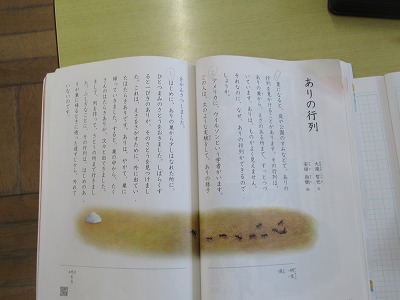 ありの行列
夏になると、庭や公園のすみなどで、ありの
行列を見かけることがあります。その行列は、
ありの巣から、えさのある所まで、ずっとつづ
いています。ありは、ものがよく見えません。
それなのに、なぜ、ありの行列ができるので
しょうか。
アメリカに、ウイルソンという学者がいます。
この人は、次のような実験をして、ありの様子
をかんさつしました。
はじめに、ありの巣から少しはなれた所に、
ひとつまみのさとうをおきました。しばらくす
ると、一ぴきのありが、そのさとうを見つけまし
た。これは、えさをさがすために、外に出てい
たはたらきありです。ありは、やがて、巣に
帰っていきました。すると、巣の中から、たく
さんのはたらきありが、次々と出てきました。
そして、列を作って、さとうの所まで行きまし
た。ふしぎなことに、その行列は、はじめのあ
りが巣に帰るときに通った道すじから、外れて
いないのです。